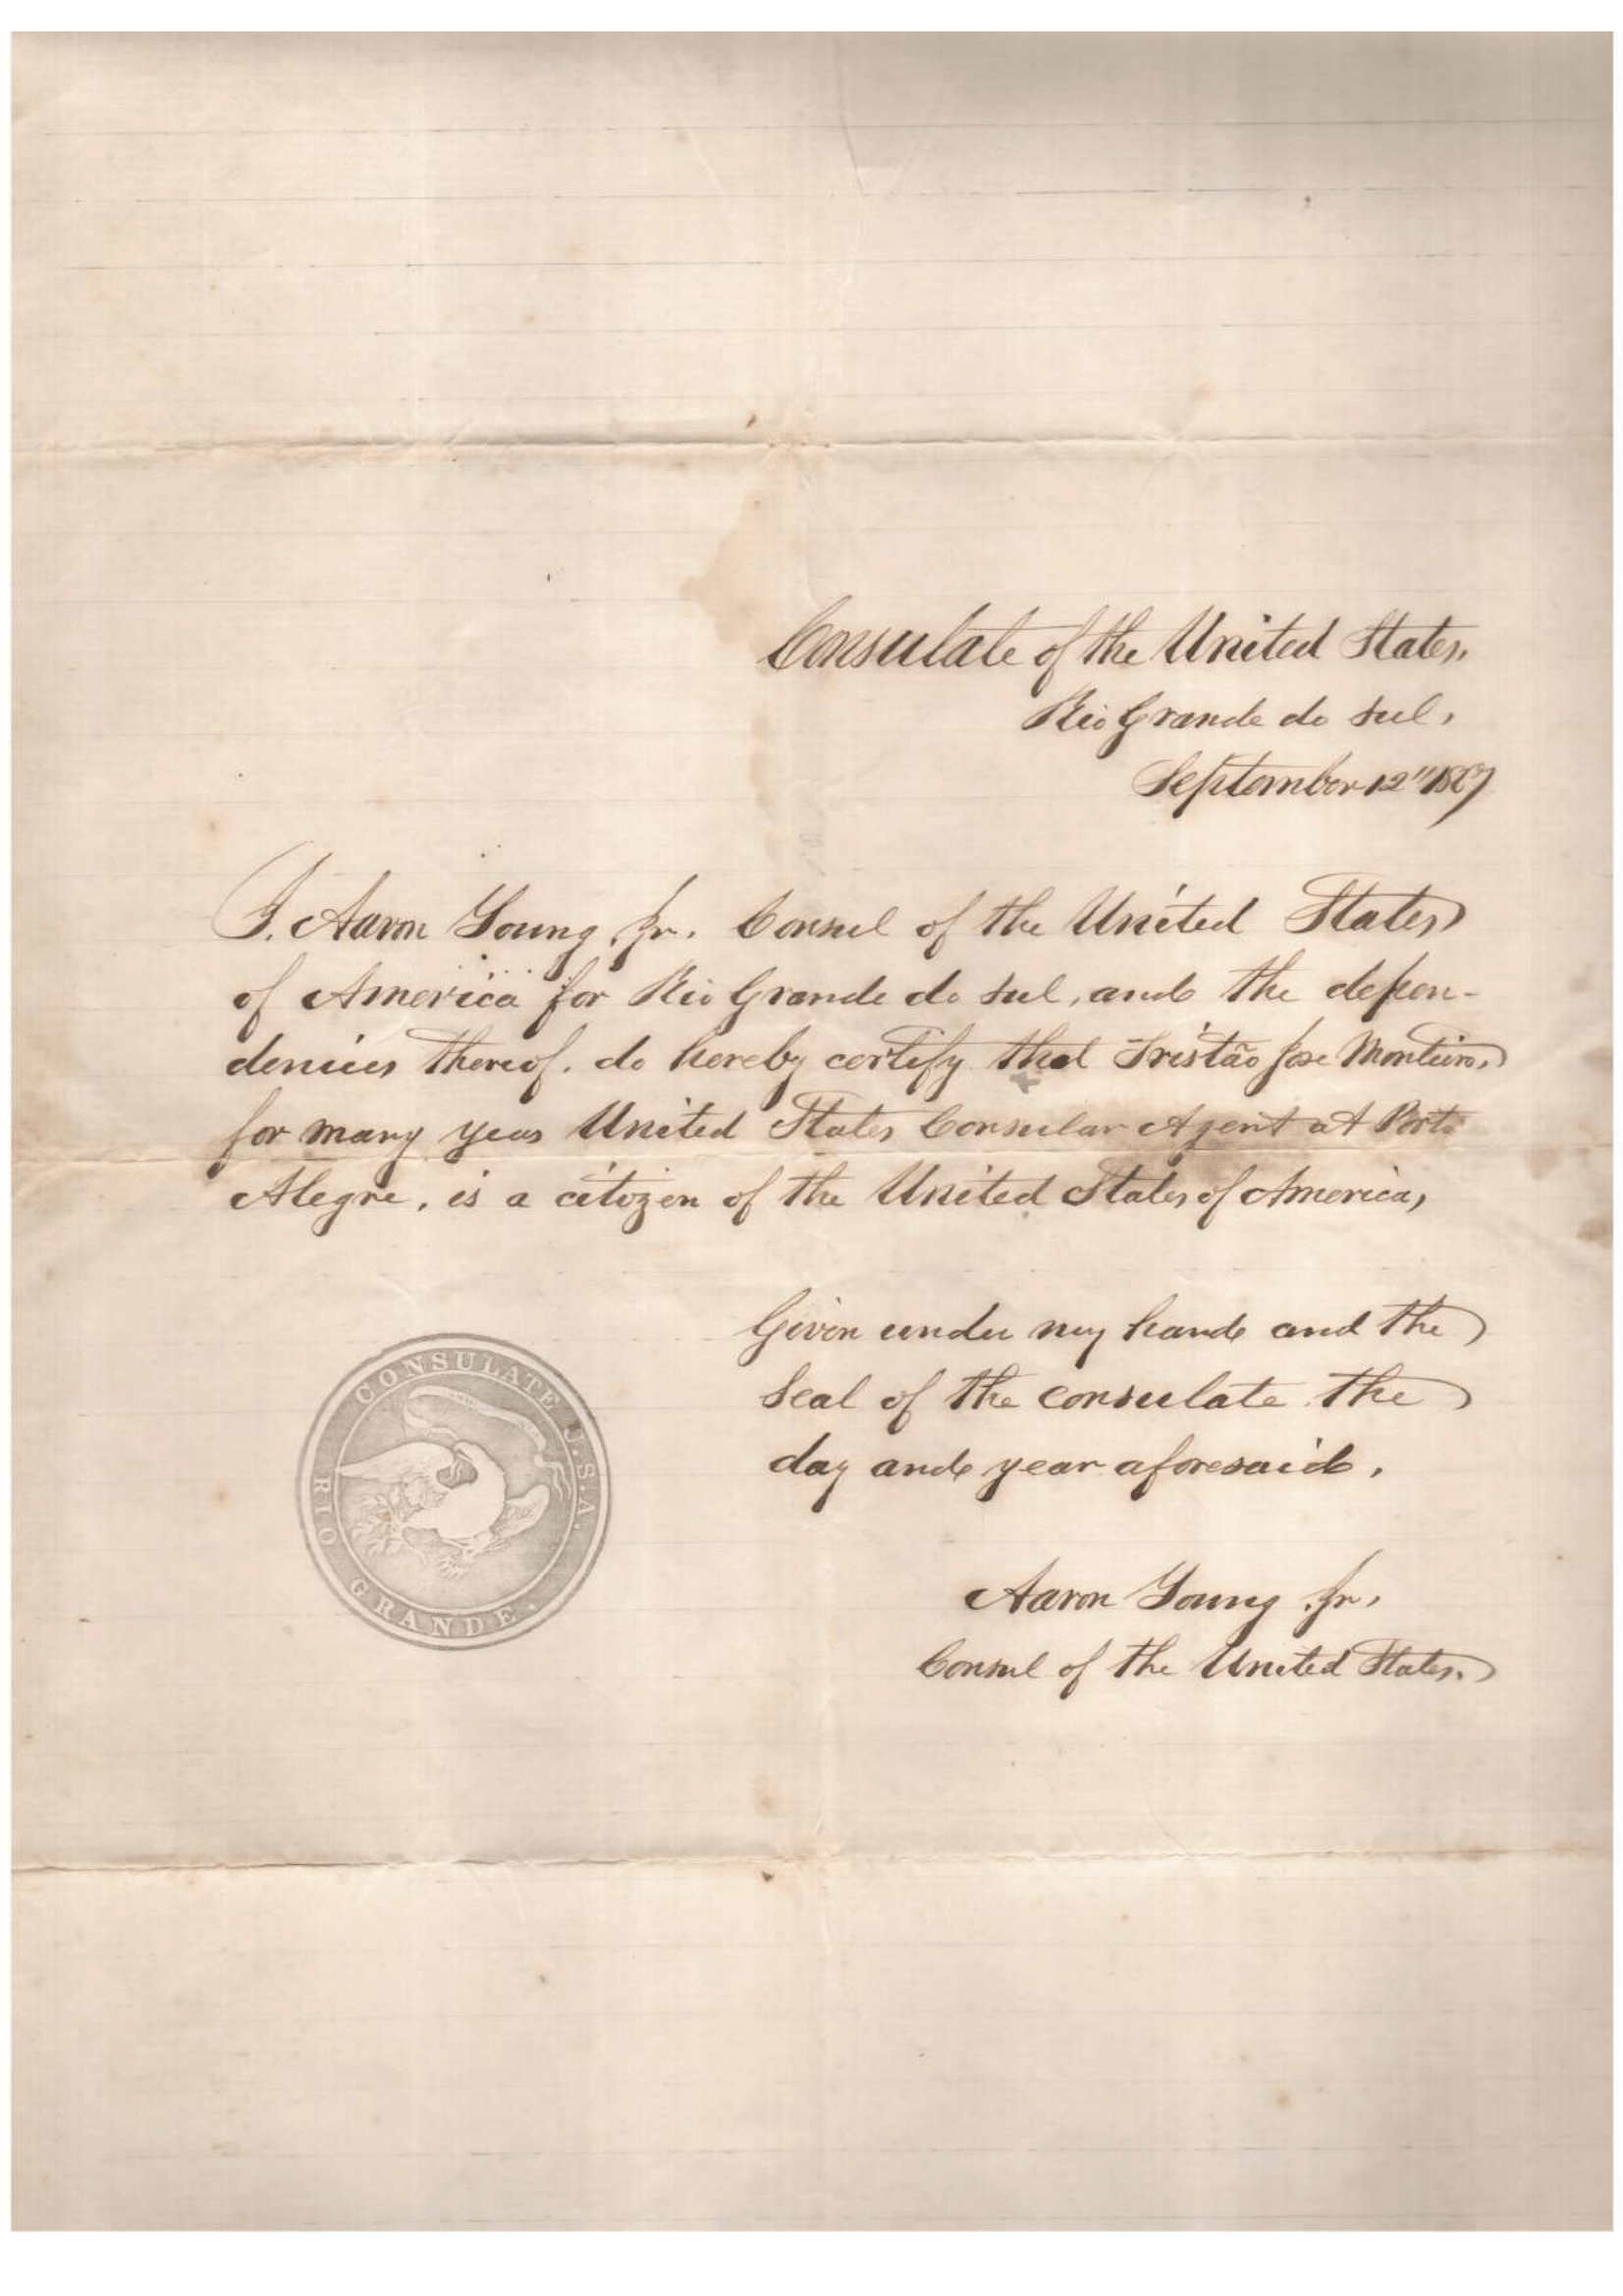 Consulate of the United States.
Rio Grande do Sul,
September 12" 1867
I. Aaron Young, Jr. Consul of the United States
of America for Rio Grande do Sul, and the depen-
dencies thereof. do hereby certify that Tristão Jose Monteiro,
for many years United States Consular Agent at Porto
Alegre, is a citizen of the United States of America,
Given under my hand and the
Seal of the consulate the
day and year aforesaid.
CONSULATE U.S.A.
RIO GRANDE.
Aaron Young Jr,
Consul of the United States.